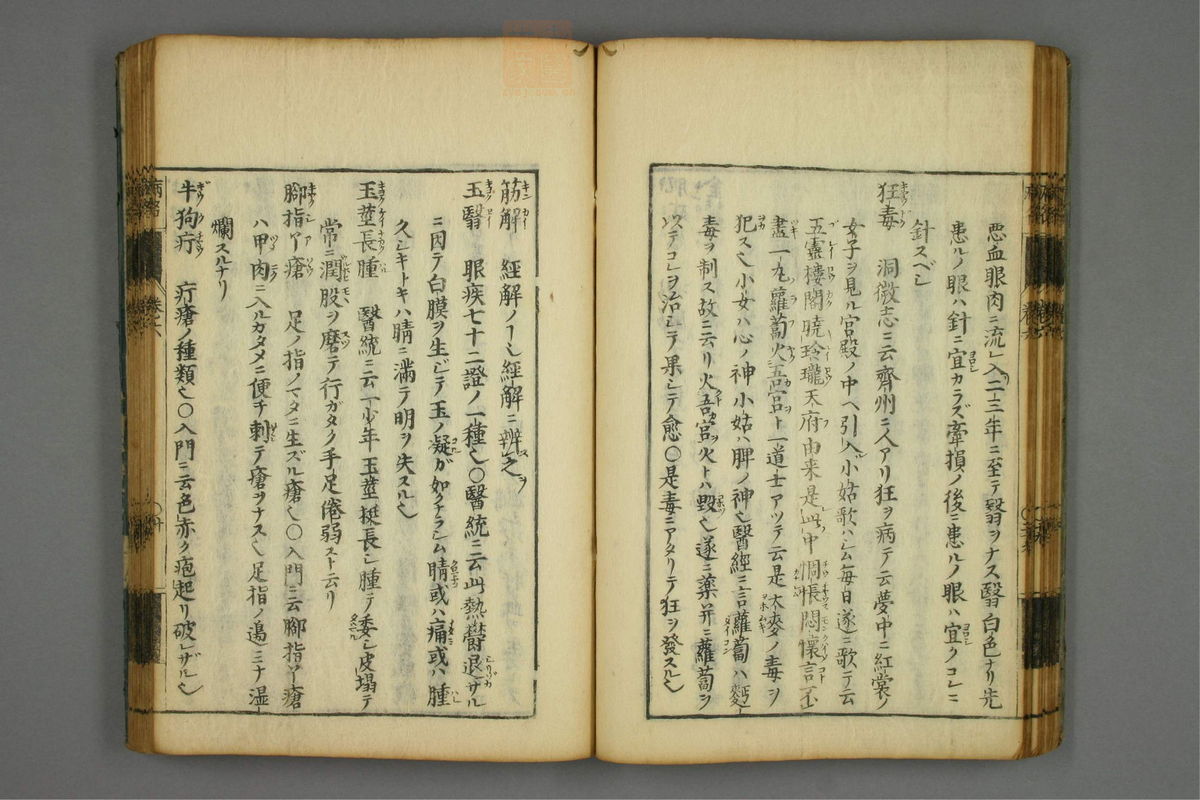 悪血眼肉ニ流レ入二三年ニ至テ翳ヲナス翳白色ナリ先
患ルノ眼ハ針ニ宜カラズ牽損ノ後ニ患ルノ眼ハ宜クコレニ
針スベシ
狂毒 洞微志ニ云齊州ニ人アリ狂ヲ病テ云夢中ニ紅裳ノ
女子ヲ見ル宮殿ノ中ヘ引入小姑歌ハシム毎日遂ニ歌テ云
五靈樓閣曉玲瓏天府由来是此中惆悵悶懷言不
盡一丸蘿蔔火吾宮ト一道士アツテ云是大麥ノ毒ヲ
犯ス也小女ハ心ノ神小姑ハ脾ノ神也醫經ニ言蘿蔔ハ麪
毒ヲ制ス故ニ云リ火吾宮火トハ毀也遂ニ藥并ニ蘿蔔ヲ
以テコレヲ治シテ果シテ愈〇是毒ニアタリテ狂ヲ發スル也
筋解 經解ノ一也經解ニ辨之
玉翳 眼疾七十二證ノ一種也〇醫統ニ云此熱欝退ザル
ニ因テ白膜ヲ生ジテ玉ノ凝ガ如クナラシム睛或ハ痛或ハ腫
久シキトキハ睛ニ滿テ明ヲ失スル也
玉莖長腫 醫統ニ云一少年玉莖挺長シ腫テ委シ皮塌テ
常ニ潤股ヲ磨テ行ガタク手足倦弱スト云リ
脚指丫瘡 足ノ指ノマタニ生ズル瘡也〇入門ニ云脚指丫瘡
ハ甲肉ニ入ルカタメニ便チ刺テ瘡ヲナス也足指ノ邉ミナ湿
爛スルナリ
牛狗疔 疔瘡ノ種類也〇入門ニ云色赤ク疱起リ破レザル也